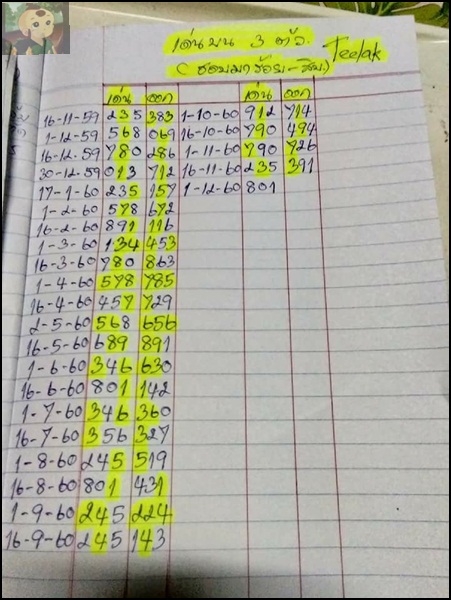 เด่นบน 3 ตัว
Teelak
(ชอบมาร้อย-สิบ)
เด่น ออก
16-11-59 235 383
1-12-59 568 069
16-12-59 780 286
30-12-59 013 712
17-1-60 235 157
1-2-60 578 672
16-2-60 891 116
1-3-60 134 453
16-3-60 780 863
1-4-60 578 785
16-4-60 457 729
2-5-60 568 656
16-5-60 689 891
1-6-60 346 630
16-6-60 801 142
1-7-60 346 360
16-7-60 356 327
1-8-60 245 519
16-8-60 801 431
1-9-60 245 224
16-9-60 245 143
เด่น ออก
1-10-60 912 714
16-10-60 790 494
1-11-60 790 726
16-11-60 235 391
1-12-60 801